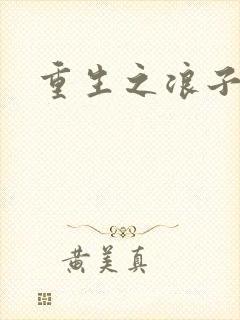 重生之浪子
黄美真